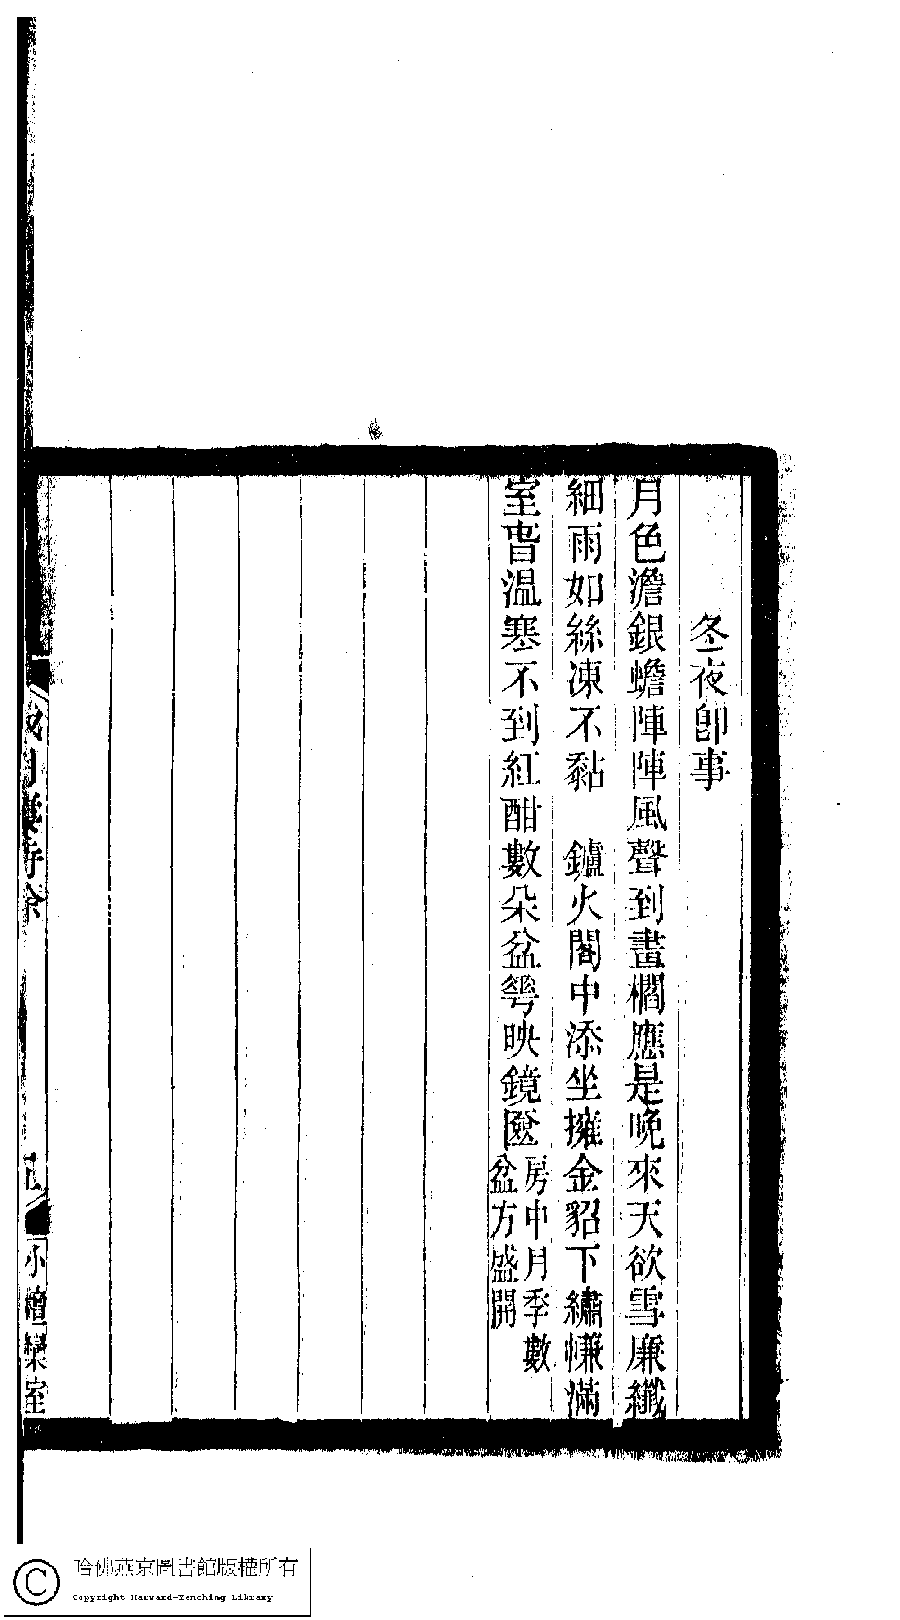 冬夜卽事
月色澹銀蟾陣陣風聲到畫櫩應是晚來天欲雪廉纖
細雨如絲凍不黏　鑪火閣中添坐擁金貂下繡㡘滿
室香溫寒不到紅酣數朵盆蕚映鏡匳
房中月季數
盆方盛開
小檀欒室
哈佛燕京圖書館版權所有
Copyright Harvard-Yenching Library